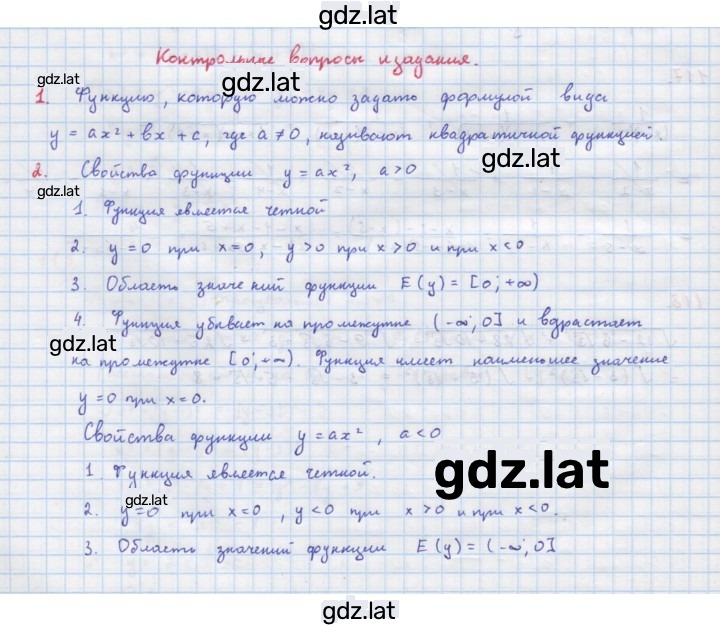 gdz.lat
Контрольные вопросы и задания.
gdz.lat
gdz.lat
1. Функцию, которую можно задать формулой вида
y = ax² + bx + c, где a ≠ 0, называют квадратичной функцией.
gdz.lat
2. Свойства функции y = ax², a > 0
gdz.lat
1. Функция является четной
2. y = 0 при x = 0, y > 0 при x > 0 и при x < 0
3. Область значений функции E(y) = [0; +∞)
4. Функция убывает на промежутке (-∞; 0] и вдрастает
gdz.lat
на промежутке [0; +∞). Функция имеет наименьшее значение
y = 0 при x = 0.
Свойства функции y = ax², a < 0
gdz.lat
1. Функция является четной.
gdz.lat
2. y = 0 при x = 0, y < 0 при x > 0 и при x < 0.
3. Область значений функции E(y) = (-∞; 0]
gdz.lat